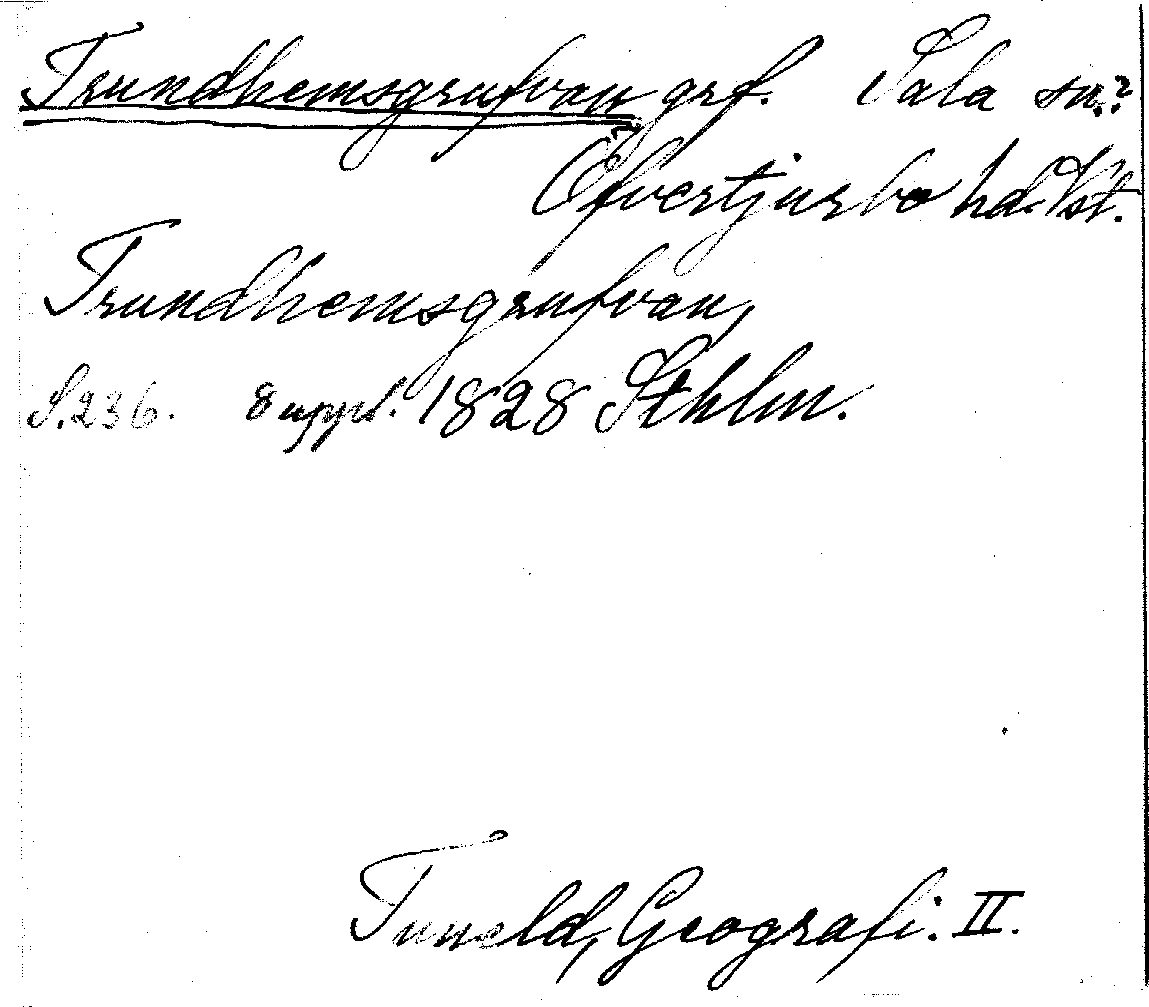 Trundhemsgrufvan grf. Sala sn.?
Öfvertjurbo hd. Vst.
Trundhemsgrufvan,
S. 236. 8 uppl. 1828 Sthlm.
Tuneld, Geografi. II.